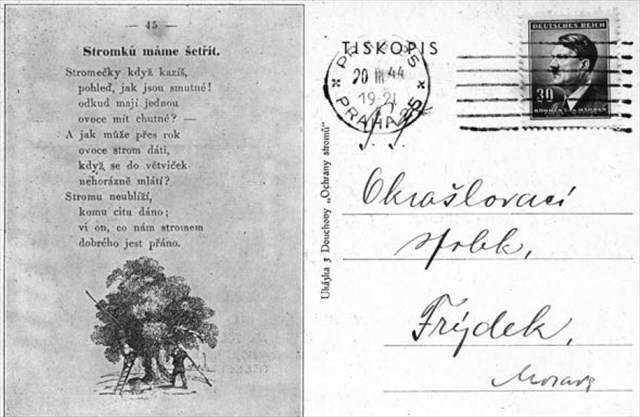 — 45 —
Stromků máme šetřit.
Stromečky když kazíš,
pohleď, jak jsou smutné!
odkud mají jednou
ovoce mít chutné? —
A jak může přes rok
ovoce strom dáti,
když se do větviček
nehorázně mlátí?
Stromu neublíží,
komu citu dáno;
ví on, co nám stromem
dobrého jest přáno.
Ukázka z Douchovy „Ochrany stromů"
TISKOPIS
PRAHA 25
20 III 44
19-21
PRAHA 25
DEUTSCHES REICH
30
BÖHMEN U. MÄHREN
Okrašlovací
spolek,
Frýdek,
Morava